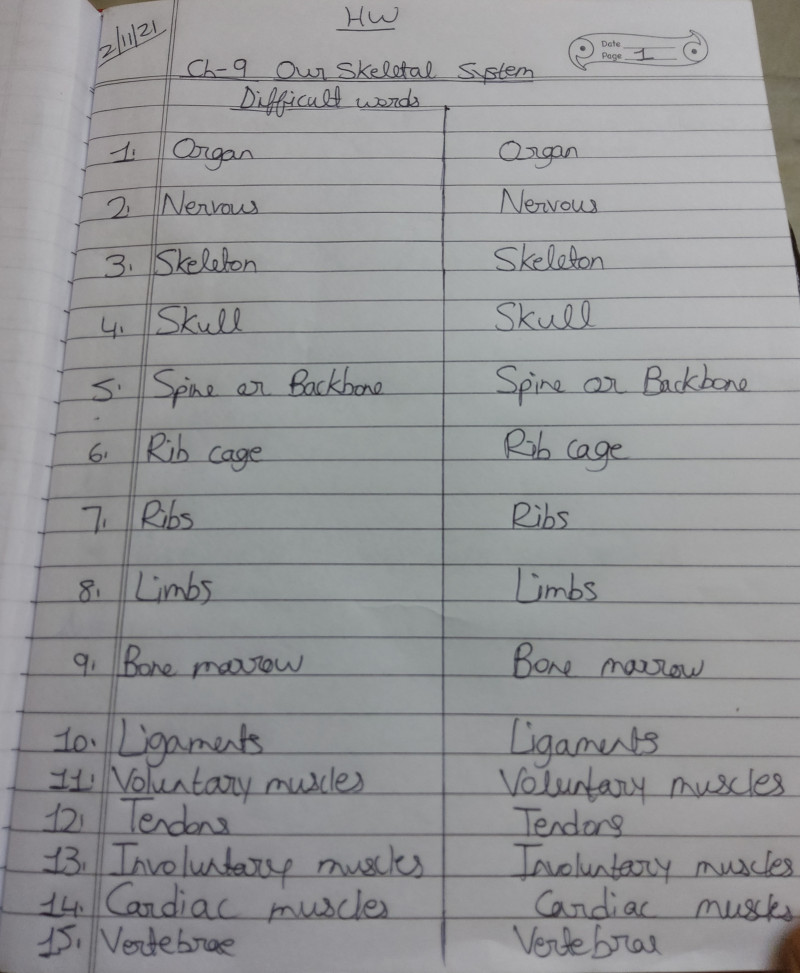 HW
2/11/21
Date
Page 1
Ch-9 Our Skeletal System
Difficult words
1. Organ Organ
2. Nervous Nervous
3. Skeleton Skeleton
4. Skull Skull
5. Spine or Backbone Spine or Backbone
6. Rib cage Rib cage
7. Ribs Ribs
8. Limbs Limbs
9. Bone marrow Bone marrow
10. Ligaments Ligaments
11. Voluntary muscles Voluntary muscles
12. Tendons Tendons
13. Involuntary muscles Involuntary muscles
14. Cardiac muscles Cardiac muscles
15. Vertebrae Vertebrae